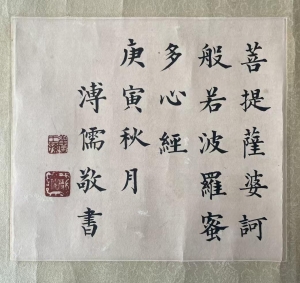 菩提薩婆訶
般若波羅蜜
多心經
庚寅秋月
溥儒敬書